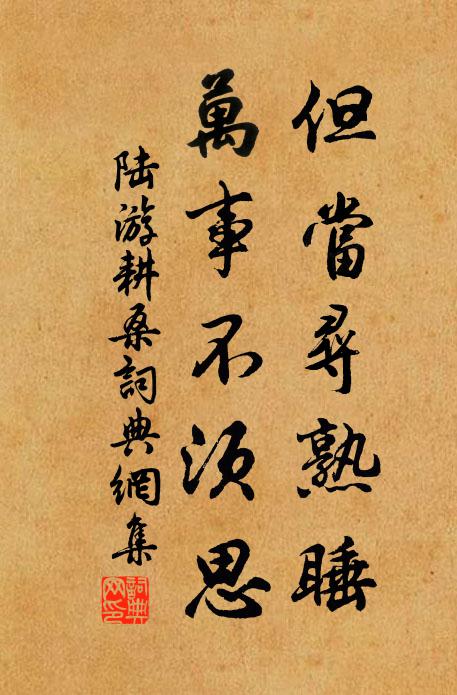 但當尋熟睡
萬事不須思
陸游耕桑詞典網集
詞典
网印